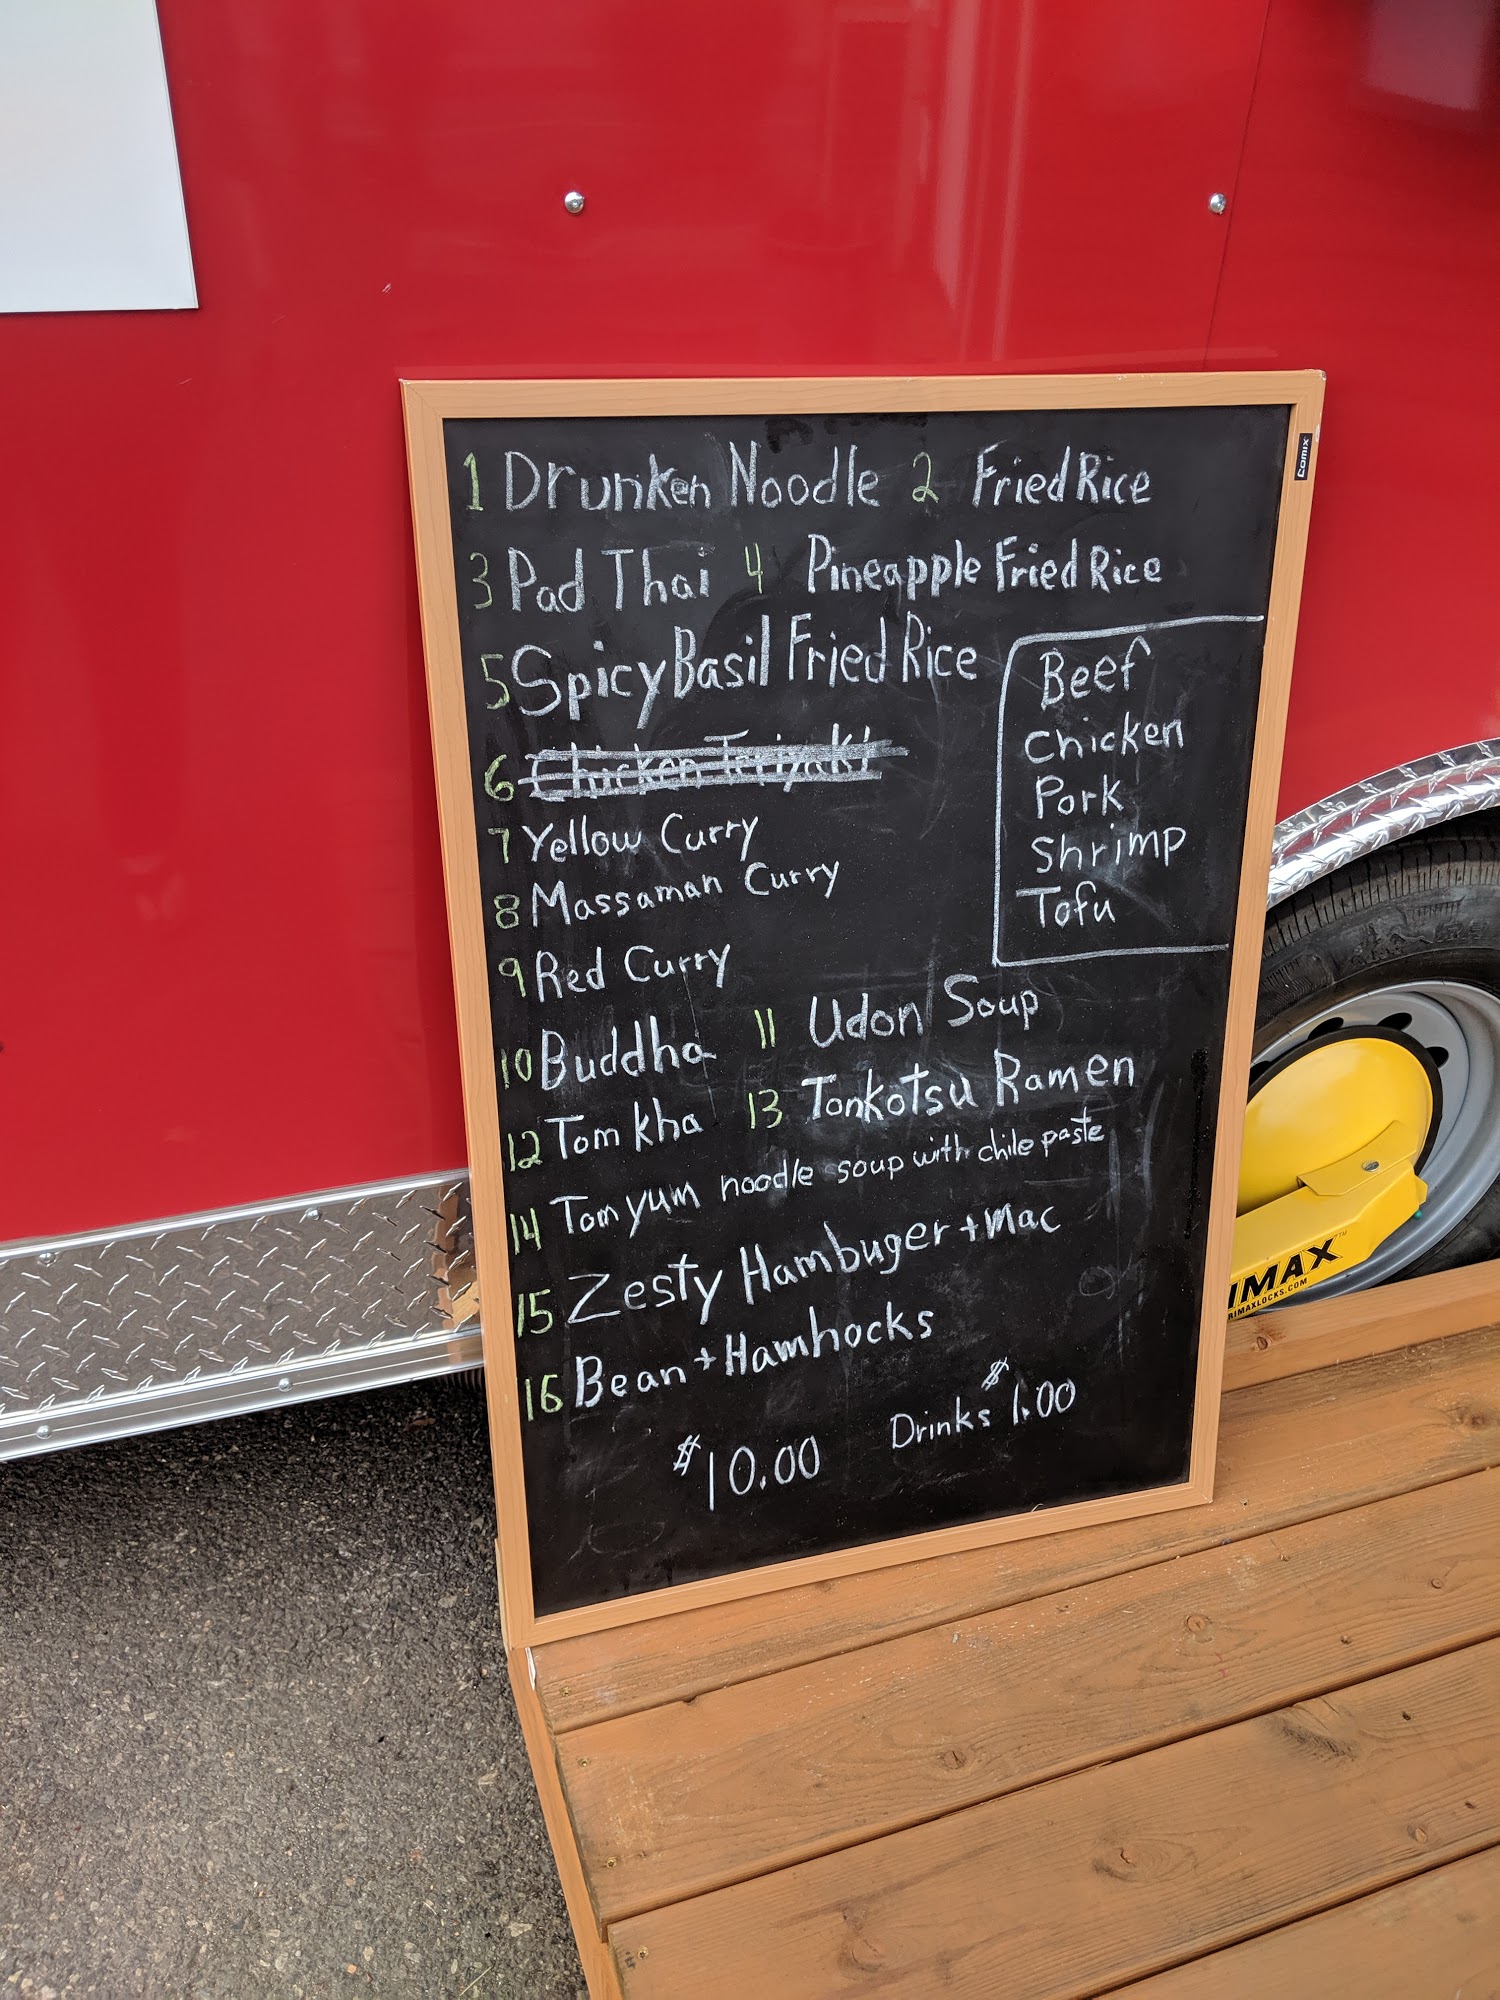 comix
1 Drunken Noodle 2 Fried Rice
3 Pad Thai 4 Pineapple Fried Rice
5 Spicy Basil Fried Rice
6 Chicken Teriyaki
7 Yellow Curry
8 Massaman Curry
9 Red Curry
Beef
Chicken
Pork
Shrimp
Tofu
10 Buddha 11 Udon Soup
12 Tom kha 13 Tonkotsu Ramen
14 Tom yum noodle soup with chile paste
15 Zesty Hambuger + Mac
16 Bean + Hamhocks
$10.00 Drinks $1.00
IMAX™
RIMAXLOCKS.COM